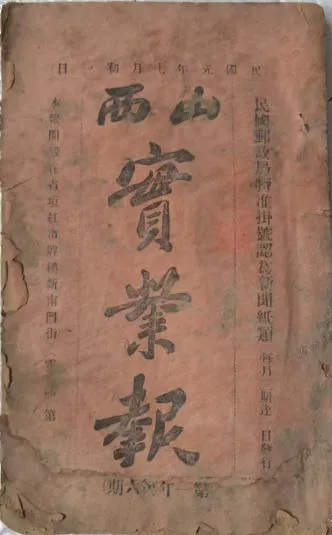 民國元年七月初一日
山西
實業報
民國郵政局特准掛號認爲新聞紙類 每月 期逢 日發行
本報開設在省垣紅市牌樓新南門街
第一年第六期